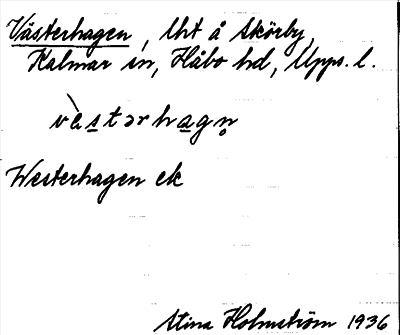 Västerhagen, lht å Skörby,
Kalmar sn, Håbo hd, Upps. l.
vàstərhagn̥
Westerhagen ek
Stina Holmström 1936